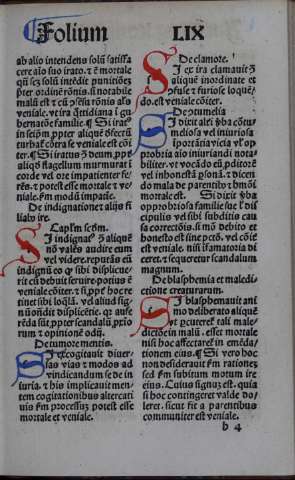 Folium LIX
ab alio intendens solũ satisfa
cere aĩo suo irato . tc̄ mortale
qñ sez solũ intẽdit punitiões
p̱ter ordinẽ rõnis. si notabile
malũ est ⁊ cũ ꝯsẽsu rõnis als̃
veniale. vt ira q̃tidiana ĩ gu
bernatõe familie. ¶ Si irat̉
in seip̃m ppter aliquẽ defectũ
turbat̃ cõtra se veniale est cõi
ter. ¶ Si irat̉us ĩ deum ppter
aliqd̉ flagellum murmurat ĩ
corde vel ore impatienter fe‑
rẽs. ⁊ potest esse mortale ⁊ ve
niale. s̃m modũ impatiẽ.
De indignatione ⁊ alijs fi
liab̉ ire.
Capl̃m sc̃dm.
SI indignat̉ ꝯ̃ aliquẽ
nõ valẽs audire eum
vel videre. reputãs eũ
indignũ eo qꝫ sibi displicue‑
rit cũ debuit seruire. potius ẽ
veniale cõiter. ⁊ si ppter hoc re
tinet sibi loq̃lã. vel aliud sig‑
nũ oñdit displicẽtie. qꝫ aufe
rẽda sũt ppter scandalũ pxio
rum ⁊ opinionẽ odij.
De tumore mentis.
SI excogitauit diuer‑
sas vias ⁊ modos ad
vindicandum se de in
iuria. ⁊ his implicauit men‑
tem cogitationibus altercati
uis s̃m processuʒ potest esse
mortale et veniale.
De clamore.
SI ex ira clamauit ꝯ̃
aliquẽ inordinate et
ꝯfuse ⁊ furiose loquẽ‑
do. est veniale cõiter.
De ꝯtumelia
SI dixit alicui ꝟba cõtu‑
meliosa vel iniuriosa
ĩportãcia vicia vl̉ op
probria aĩo iniuriandi nota‑
biliter. vt vocãdo eũ pditorẽ
vel inhonestã psonã. ⁊ dicen
do mala de parentib⁹ ⁊ hmõi
mortale est. ¶ Si dixit ꝟba
opprobriosa familie sue ⁊ dis
cipulis vel sibi subditis cau
sa correctõis. si mõ debito et
honesto ⁊ sine pctõ. vel cõit̃
est veniale. nisi ĩfamatoria di
ceret. ⁊ sequeretur scandalum
magnum.
De blasphemia et maledi‑
ctione creaturarum.
SI blasphemauit ani
mo deliberato aliquẽ
vt pcuteret̉ tali male
dictõe in malũ. esset mortale
nisi hoc affectaret in emẽda‑
tionem eius. ¶ Si vero hoc
non desiderauit s̃m rationeʒ
sed s̃m subitum motum ire
eius. Cuius signuʒ est. quia
si hoc contingeret valde do‑
leret. sicut fit a parentibus
communiter est veniale.
b 4